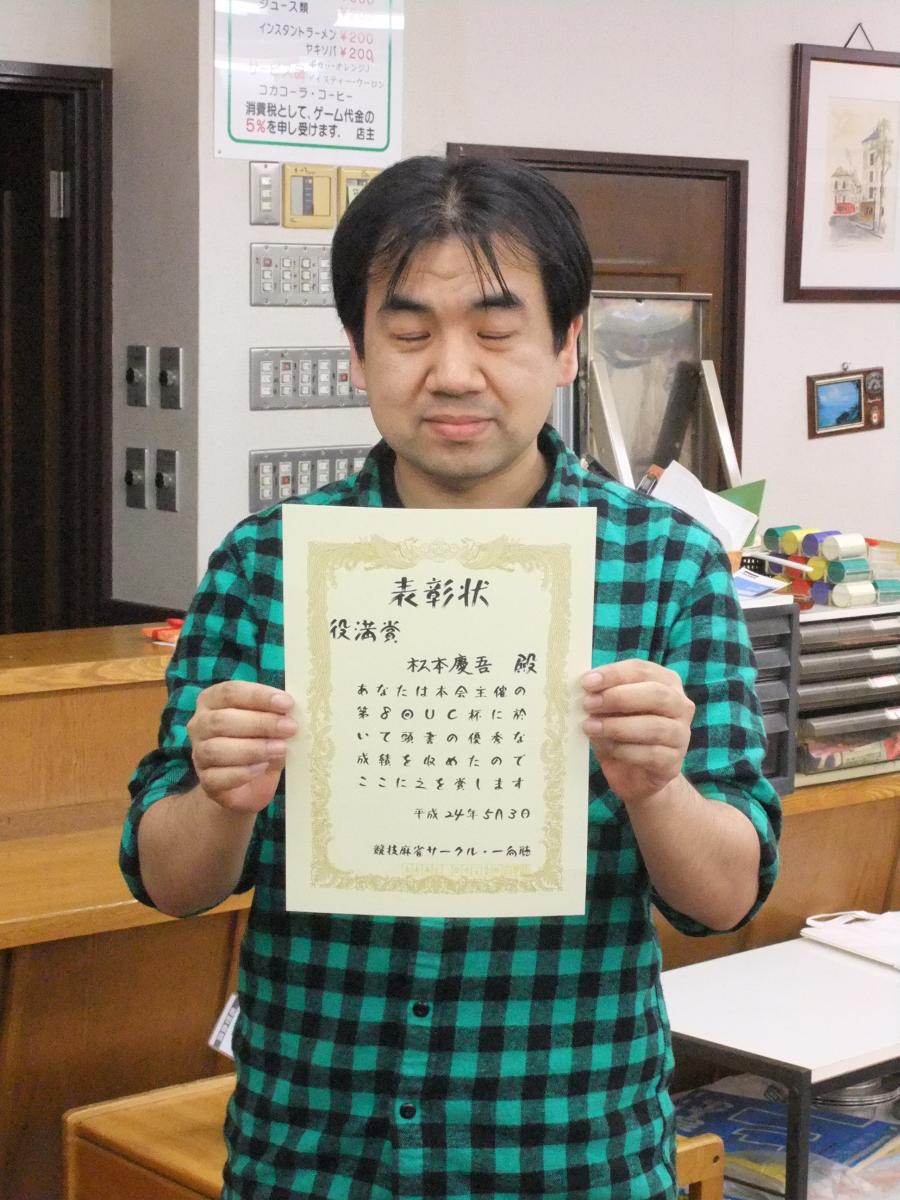 ジュース類
インスタントラーメン ¥200
ヤキソバ ¥200
サービス品
コカコーラ・コーヒー
消費税として、ゲーム代金の
5%を申し受けます。 店主
表彰状
役満賞
松本慶吾 殿
あなたは本会主催の
第8回UC杯に於
いて頭書の優秀な
成績を収めたので
ここに之を賞します
平成24年5月3日
競技麻雀サークル・一向聴